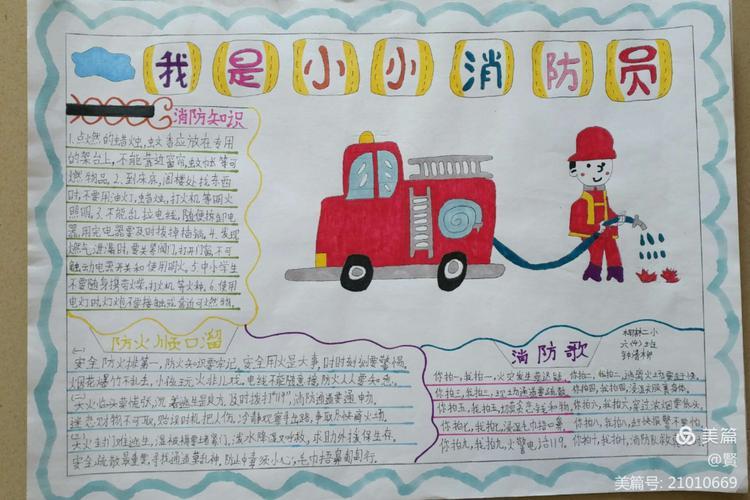 我是小小消防员
消防知识
1.点燃的蜡烛,蚊香应放在专用
的架台上,不能靠近窗帘,蚊帐等可
燃物品。2.到床底,阁楼处找东西
时,不要用油灯,蜡烛,打火机等明火
照明。3.不能乱拉电线,随便拆卸电
器,用完电器要及时拔掉插销。4.发现
燃气泄漏时,要关紧阀门,打开门窗,不可
触动电器开关和使用明火。5.中小学生
不要随身携带火柴,打火机等火种。6.使用
电灯时,灯泡不要接触或靠近可燃物。
防火顺口溜
安全防火排第一,防火知识要牢记,安全用火是大事,时时刻刻要警惕。
烟花爆竹不乱丢,小孩玩火非儿戏,电线不能随意接,防火人人要知悉。
火临头要慌张,沉着逃生是良方,及时拨打"119",消防通道要通畅,
迷恋财物不可取,贻误时机把人伤。冷静观察寻出路,争取尽快离火场。
火封门难逃生,湿被褥要堵紧门,泼水降温
安全疏散最重要,寻找通道莫乱
消防歌
柳林二小
你拍一,我拍一,火灾发生
你拍三,我拍三,
你拍五,我拍五,
你拍七,我拍七,浸湿毛巾捂口鼻。
你拍九,我拍九,火警电话119。
你拍四,我拍四,
你拍六,我拍六,
你拍八,我拍八,
你拍十,我拍十,消防队
美篇
@賢
美篇号: 21010669